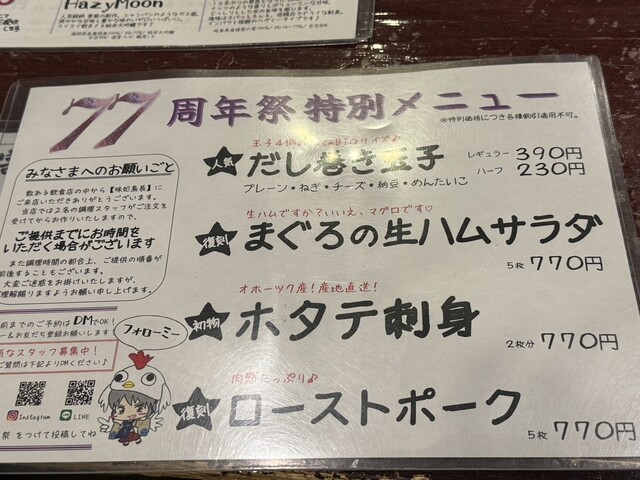 HazyMoon
77周年祭 特別メニュー
※特別価格につき各種割引適用不可。
みなさまへのお願いごと
数ある飲食店の中から【味如島長】に
ご来店いただきありがとうございます。
当店では2名の調理スタッフがご注文を
受けてからお作りいたしますので、
ご提供までにお時間を
いただく場合がございます
また調理時間の都合上、ご提供の順番が
前後することもございます。
大変ご迷惑をお掛けいたしますが、
理解賜りますようお願い申し上げます。
前までのご予約はDMでOK!
ー&お友だち登録お願いします
気なスタッフ募集中!
ご質問は下記よりDMください♪
Instagram
LINE
祭 をつけて投稿してね
フォローミー
人気
だし巻き玉子
レギュラー 390円
ハーフ 230円
プレーン・ねぎ・チーズ・納豆・めんたいこ
生ハムですか?いいえ、マグロです♡
復刻
まぐろの生ハムサラダ
5枚 770円
オホーツク産!産地直送!
初物
ホタテ刺身
2枚分 770円
肉感たっぷり♪
復刻
ローストポーク
5枚 770円